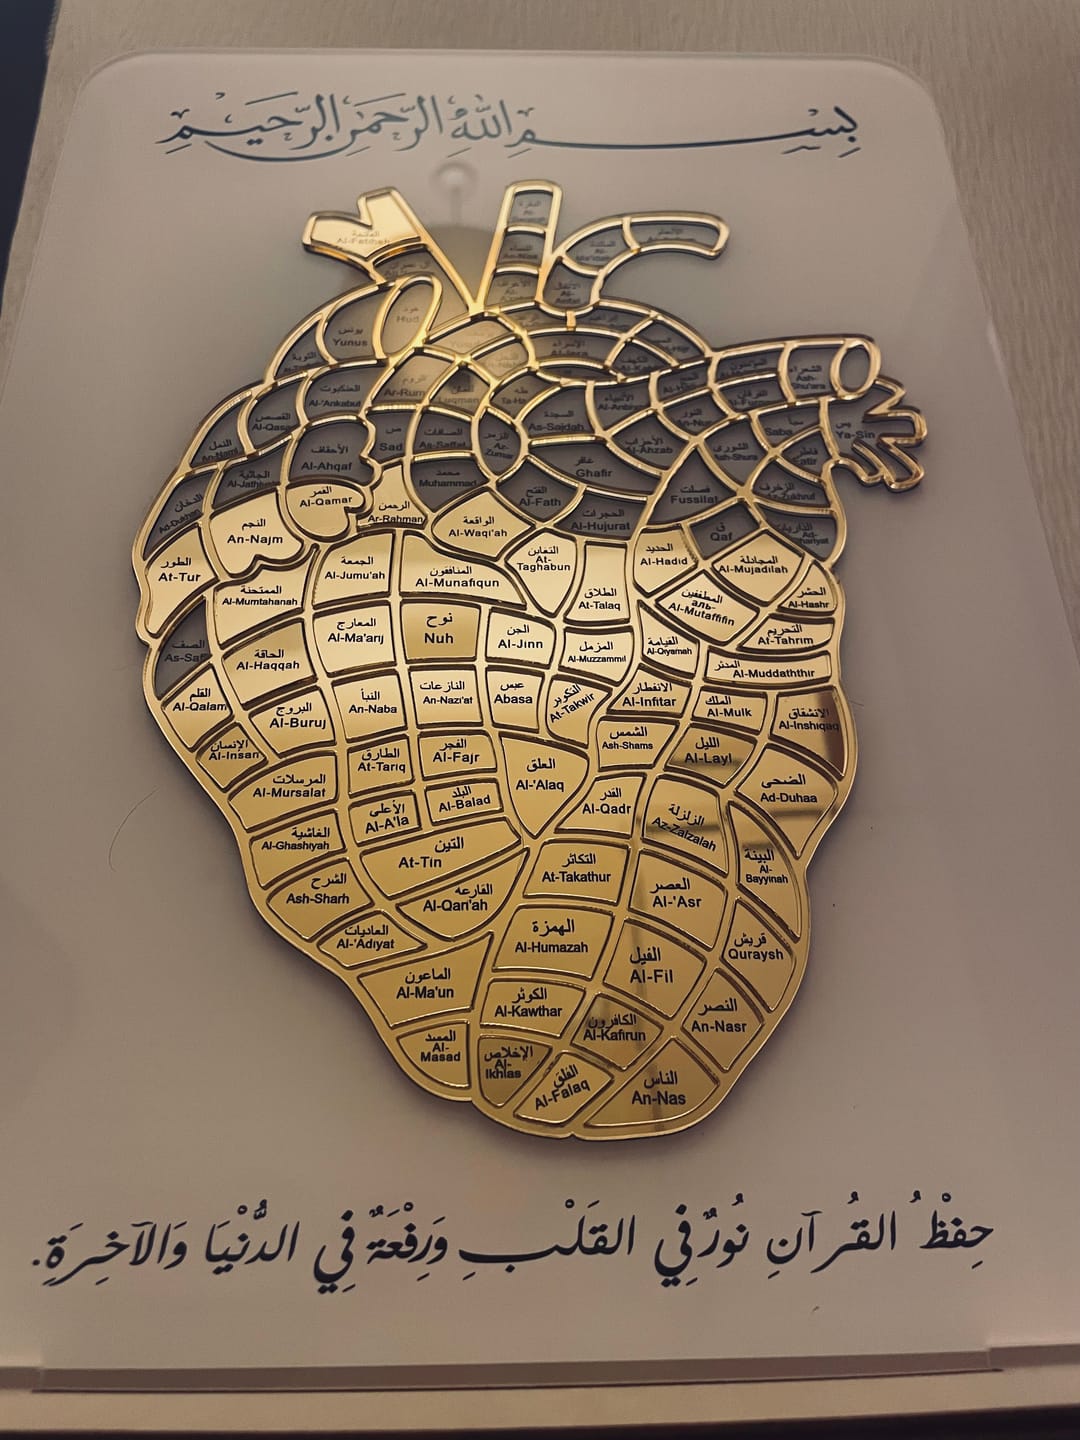 بِسْمِ اللَّهِ الرَّحْمَٰنِ الرَّحِيمِ
الفاتحة
Al-Fatihah
البقرة
النساء
An-Nisa
المائدة
الأنعام
الأعراف
الأنفال
Al-Anfal
هود
Hud
يونس
Yunus
التوبة
الإسراء
Al-Isra
الكهف
المؤمنون
الشعراء
Ash-Shu'ara
العنكبوت
Al-'Ankabut
الروم
Ar-Rum
لقمان
Luqman
طه
Ta-Ha
الأنبياء
Al-Anbiya
الفرقان
القصص
Al-Qasas
النمل
An-Naml
ص
Sad
الصافات
As-Saffat
الزمر
Az-Zumar
السجدة
As-Sajdah
النور
An-Nur
سبأ
Saba
يس
Ya-Sin
الأحقاف
Al-Ahqaf
الأحزاب
Al-Ahzab
الشورى
Ash-Shura
فاطر
Fatir
الجاثية
Al-Jathiyah
محمد
Muhammad
غافر
Ghafir
الدخان
Ad-Dukhan
القمر
Al-Qamar
الرحمن
Ar-Rahman
الفتح
Al-Fath
فصلت
Fussilat
الزخرف
Az-Zukhruf
النجم
An-Najm
الواقعة
Al-Waqi'ah
الحجرات
Al-Hujurat
ق
Qaf
الذاريات
Ad-Dhariyat
الطور
At-Tur
الجمعة
Al-Jumu'ah
المنافقون
Al-Munafiqun
التغابن
At-Taghabun
الحديد
Al-Hadid
المجادلة
Al-Mujadilah
الممتحنة
Al-Mumtahanah
الطلاق
At-Talaq
المطففين
аль-
Al-Mutaffifin
الحشر
Al-Hashr
الصف
As-Saf
المعارج
Al-Ma'arij
نوح
Nuh
الجن
Al-Jinn
المزمل
Al-Muzzammil
القيامة
Al-Qiyamah
التحريم
At-Tahrim
المدثر
Al-Muddaththir
الحاقة
Al-Haqqah
القلم
Al-Qalam
البروج
Al-Buruj
النبأ
An-Naba
النازعات
An-Nazi'at
عبس
Abasa
التكوير
At-Takwir
الانفطار
Al-Infitar
الملك
Al-Mulk
الانشقاق
Al-Inshiqaq
الإنسان
Al-Insan
الطارق
At-Tariq
الفجر
Al-Fajr
العلق
Al-'Alaq
الشمس
Ash-Shams
الليل
Al-Layl
المرسلات
Al-Mursalat
الأعلى
Al-A'la
البلد
Al-Balad
القدر
Al-Qadr
الزلزلة
Az-Zalzalah
الضحى
Ad-Duhaa
الغاشية
Al-Ghashiyah
التين
At-Tin
التكاثر
At-Takathur
البينة
Al-Bayyinah
الشرح
Ash-Sharh
القارعه
Al-Qari'ah
العصر
Al-'Asr
العاديات
Al-'Adiyat
الهمزة
Al-Humazah
الفيل
Al-Fil
قريش
Quraysh
الماعون
Al-Ma'un
الكوثر
Al-Kawthar
الكافرون
Al-Kafirun
النصر
An-Nasr
المسد
Al-Masad
الإخلاص
Al-Ikhlas
الفلق
Al-Falaq
الناس
An-Nas
حِفْظُ القُرآنِ نُورٌ فِي القَلْبِ وَرِفْعَةٌ فِي الدُّنْيَا وَالآخِرَةِ.